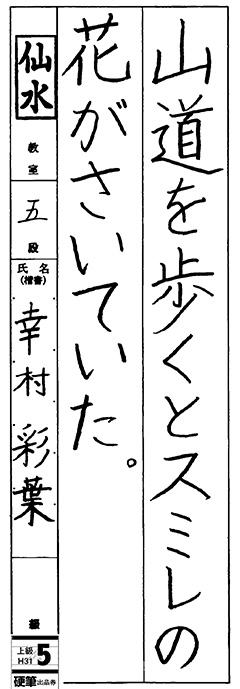 山道を歩くとスミレの
花がさいていた。
仙水
教室
五
段
氏名
(楷書)
幸村彩葉
級
上級
H31
5
硬筆出品券